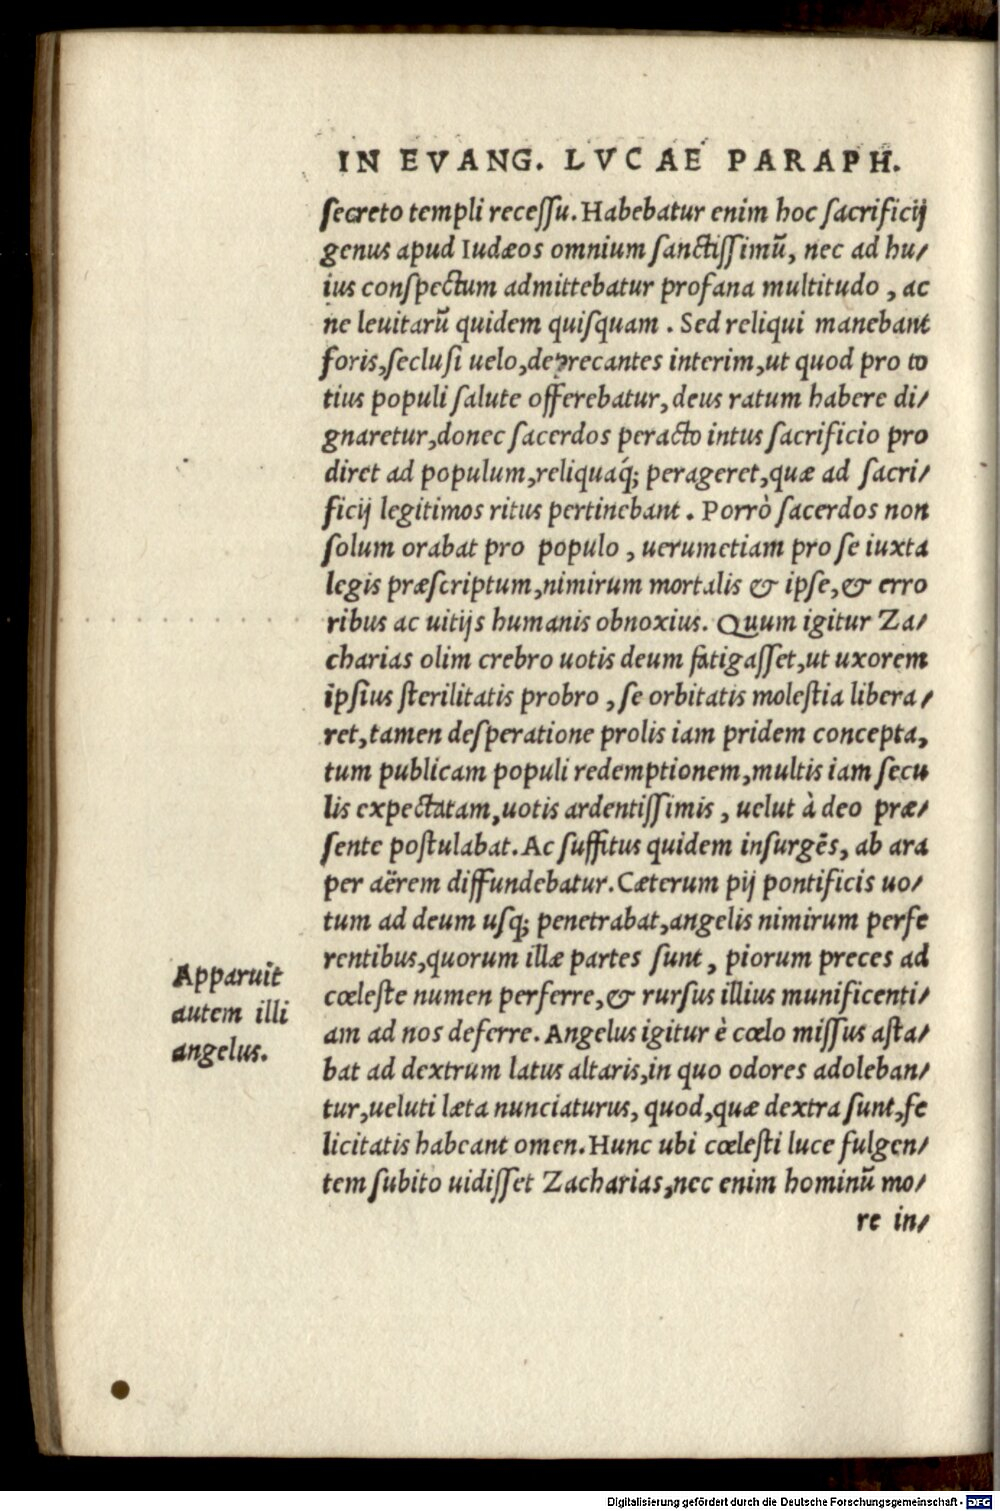 IN EVANG. LVCAE PARAPH.
ſecreto templi receſſu. Habebatur enim hoc ſacrificij
genus apud Iudæos omnium ſanctiſſimū, nec ad hu/
ius conſpectum admittebatur profana multitudo, ac
ne leuitarū quidem quiſquam. Sed reliqui manebant
foris, ſecluſi uelo, deprecantes interim, ut quod pro to
tius populi ſalute offerebatur, deus ratum habere di/
gnaretur, donec ſacerdos peracto intus ſacrificio pro
diret ad populum, reliquaq́; perageret, quæ ad ſacri/
ficij legitimos ritus pertinebant. Porrò ſacerdos non
ſolum orabat pro populo, uerumetiam pro ſe iuxta
legis præſcriptum, nimirum mortalis & ipſe, & erro
ribus ac uitijs humanis obnoxius. Quum igitur Za/
charias olim crebro uotis deum fatigaſſet, ut uxorem
ipſius ſterilitatis probro, ſe orbitatis moleſtia libera/
ret, tamen deſperatione prolis iam pridem concepta,
tum publicam populi redemptionem, multis iam ſecu
lis expectatam, uotis ardentiſſimis, uelut à deo præ/
ſente poſtulabat. Ac ſuffitus quidem inſurgēs, ab ara
per aërem diffundebatur. Cæterum pij pontificis uo/
tum ad deum uſq; penetrabat, angelis nimirum perfe
rentibus, quorum illæ partes ſunt, piorum preces ad
cœleſte numen perferre, & rurſus illius munificenti/
am ad nos deferre. Angelus igitur è cœlo miſſus aſta/
bat ad dextrum latus altaris, in quo odores adoleban/
tur, ueluti læta nunciaturus, quod, quæ dextra ſunt, fe
licitatis habeant omen. Hunc ubi cœleſti luce fulgen/
tem ſubito uidiſſet Zacharias, nec enim hominū mo/
re in/
Apparuit
autem illi
angelus.
Digitalisierung gefördert durch die Deutsche Forschungsgemeinschaft - DFG